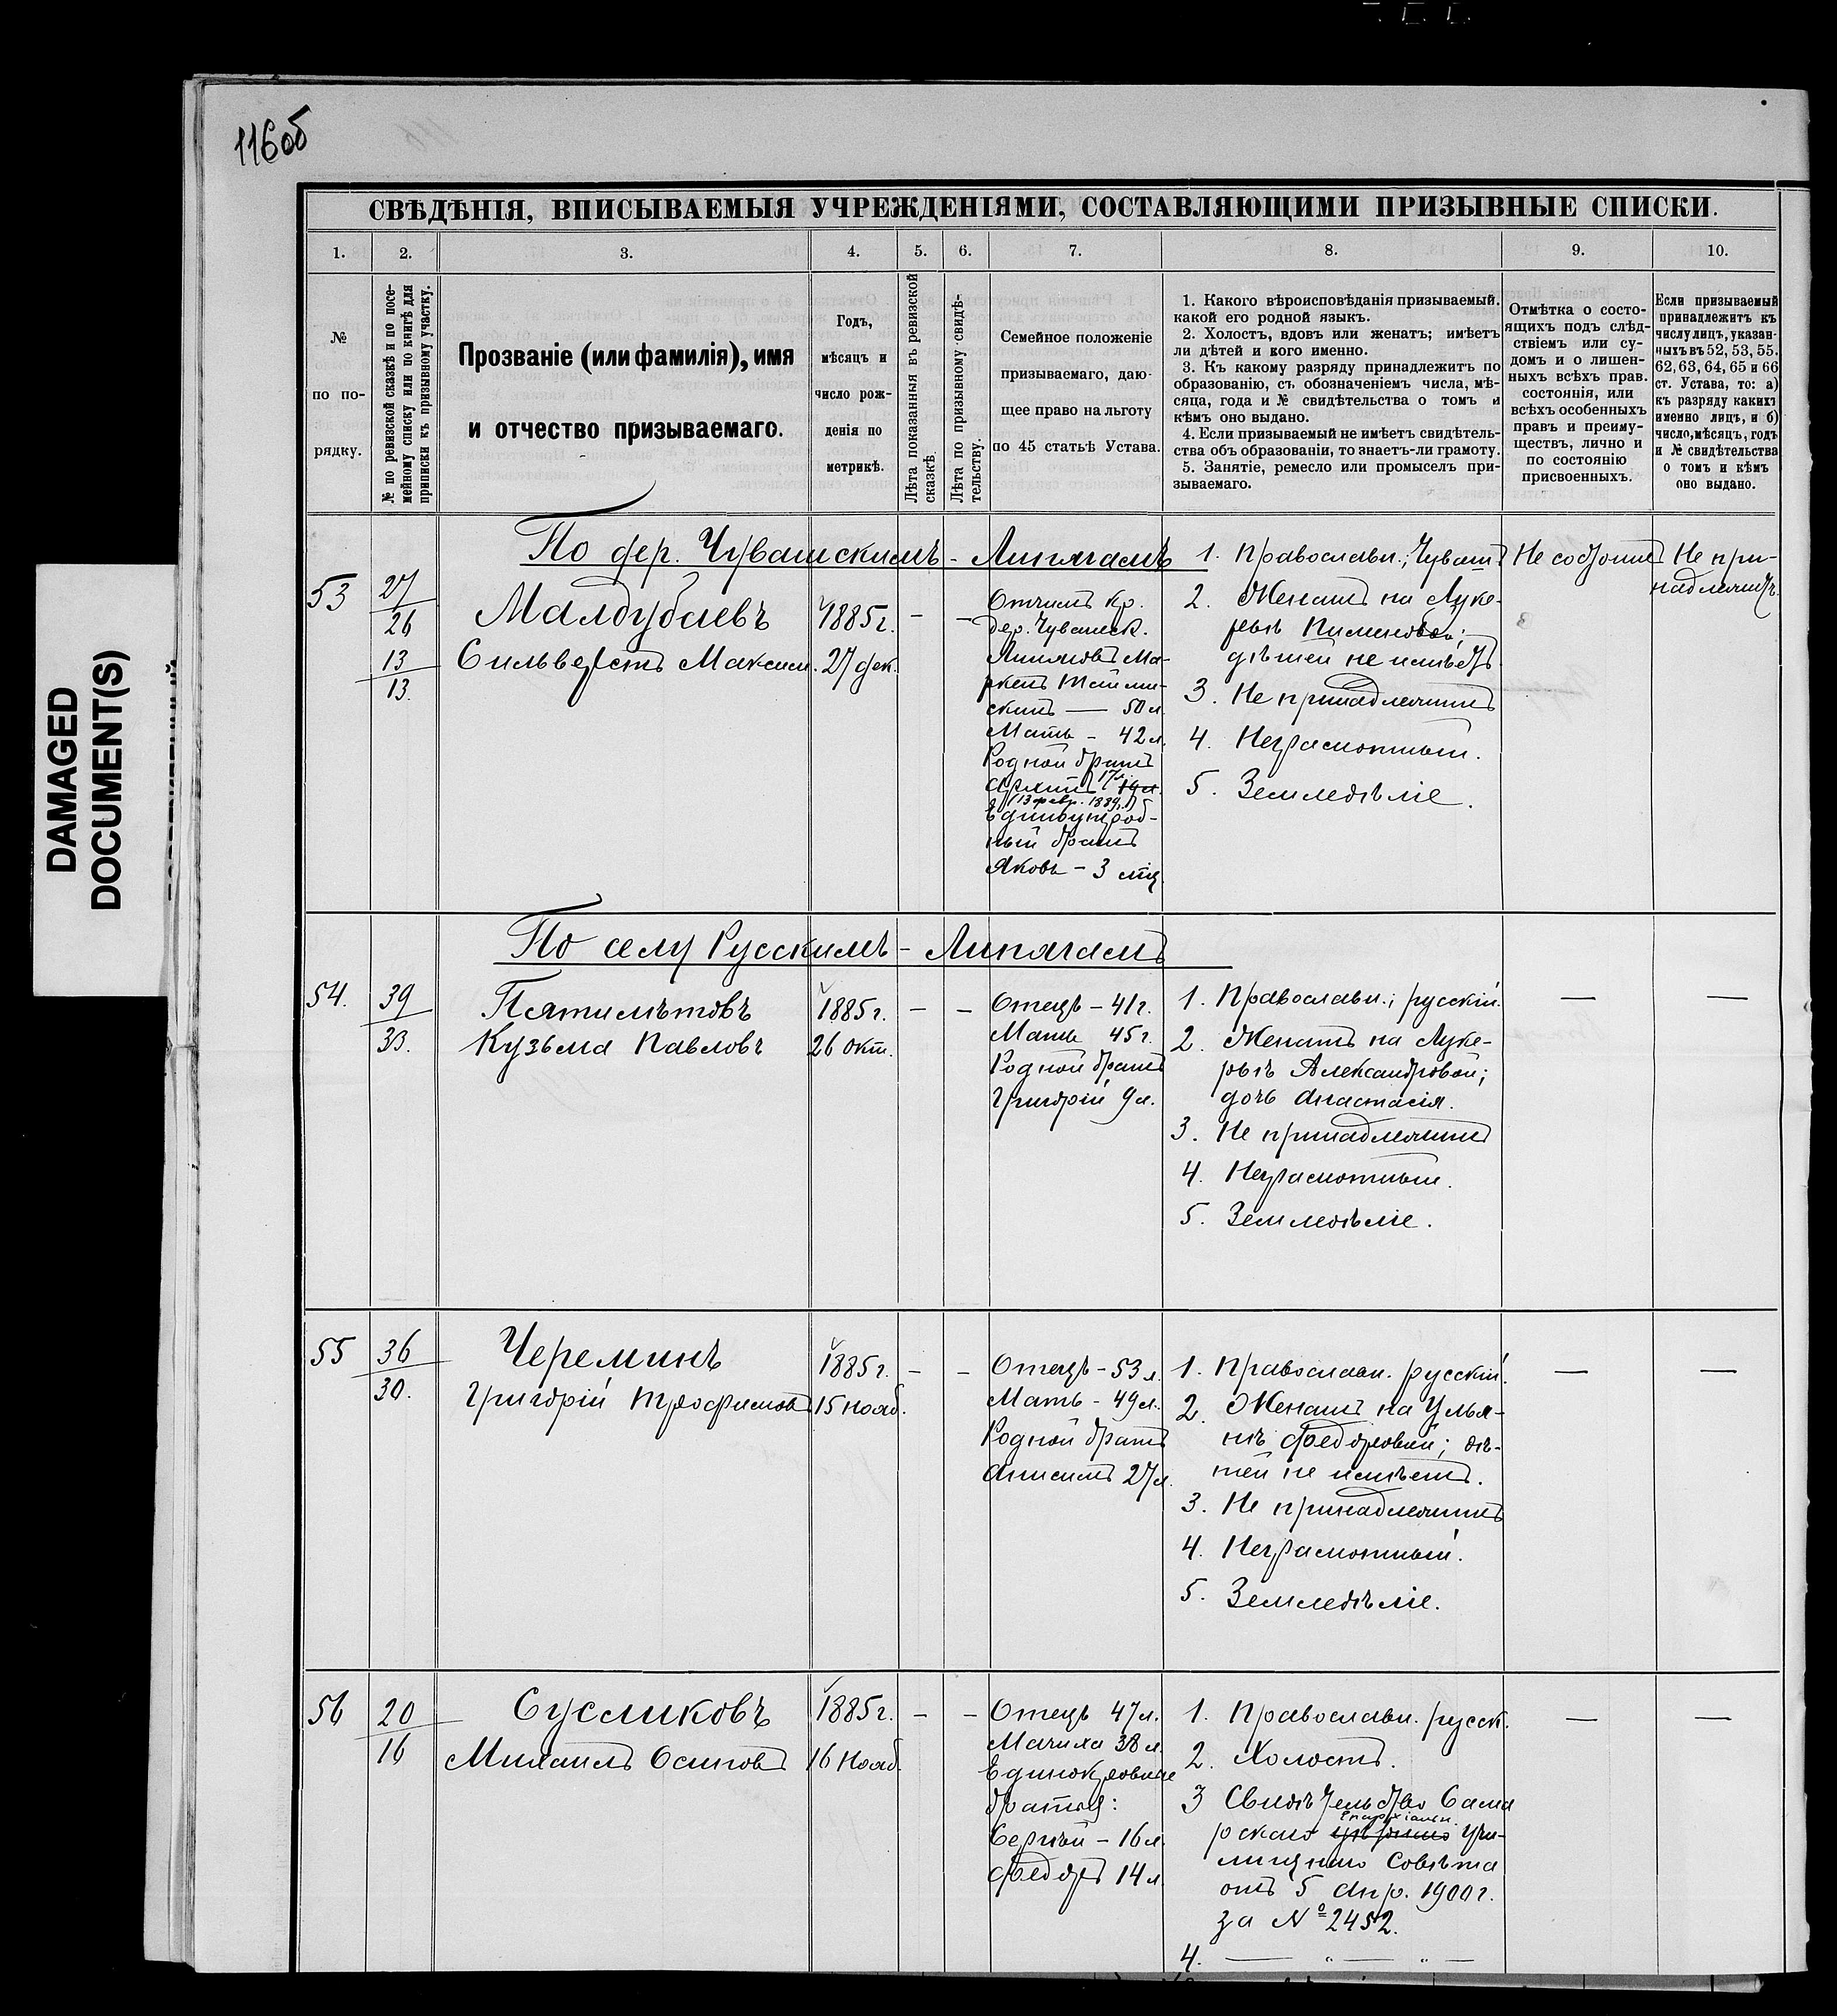 116об
DAMAGED
DOCUMENT(S)
СВѢДѢНІЯ, ВПИСЫВАЕМЫЯ УЧРЕЖДЕНІЯМИ, СОСТАВЛЯЮЩИМИ ПРИЗЫВНЫЕ СПИСКИ.
1. 2. 3. 4. 5. 6. 7. 8. 9. 10.
№
по по-
рядку.
№ по ревизской сказкѣ и по посе-
мейному списку или по книгѣ для
приписки къ призывному участку.
Прозваніе (или фамилія), имя
и отчество призываемаго.
Годъ,
мѣсяцъ и
число рож-
денія по
метрикѣ.
Лѣта показанныя въ ревизской
сказкѣ.
Лѣта по призывному свидѣ-
тельству.
Семейное положеніе
призываемаго, даю-
щее право на льготу
по 45 статьѣ Устава.
1. Какого вѣроисповѣданія призываемый.
какой его родной языкъ.
2. Холостъ, вдовъ или женатъ; имѣетъ
ли дѣтей и кого именно.
3. Къ какому разряду принадлежитъ по
образованію, съ обозначеніемъ числа, мѣ-
сяца, года и № свидѣтельства о томъ и
кѣмъ оно выдано.
4. Если призываемый не имѣетъ свидѣтель-
ства объ образованіи, то знаетъ-ли грамоту.
5. Занятіе, ремесло или промыселъ при-
зываемаго.
Отмѣтка о состо-
ящихъ подъ слѣд-
ствіемъ или су-
домъ и о лишен-
ныхъ всѣхъ прав.
состоянія, или
всѣхъ особенныхъ
правъ и преиму-
ществъ, лично и
по состоянію
присвоенныхъ.
Если призываемый
принадлежитъ къ
числу лицъ, указан-
ныхъ въ 52, 53, 55.
62, 63, 64, 65 и 66
ст. Устава, то: а)
къ разряду какихъ
именно лицъ, и б)
число, мѣсяцъ, годъ
и № свидѣтельства
о томъ и кѣмъ
оно выдано.
По дер. Чувашскимъ - Липягамъ
53
27
26
13
13.
Малдубаевъ
Сильверстъ Максим.
1885 г.
27 дек.
-
-
Отчимъ кр.
дер. Чувашск.
Липяговъ Ма-
скинъ — 50 л.
Мать - 42 л.
Родной братъ
17 л.
13 февр. 1889
Единоутроб-
ный братъ
Яковъ - 3 мѣс.
1. Православн.; Чуваш.
2. Женатъ на Луке-
рьѣ Пименовой;
дѣтей не имѣетъ
3. Не принадлежитъ
4. Неграмотный.
5. Земледѣліе.
Не состоитъ
Не при-
надлежитъ.
По селу Русскимъ - Липягамъ
54.
39
33.
Пятилѣтовъ
Кузьма Павловъ
1885 г.
26 окт.
-
-
Отецъ - 41 г.
Мать 45 г.
Родной братъ
Григорій 9 л.
1. Православн.; русскій.
2. Женатъ на Луке-
рьѣ Александровой;
дочь Анастасія.
3. Не принадлежитъ
4. Неграмотный.
5. Земледѣліе.
—
—
55
36
30.
Череминъ
Григорій Трофимовъ
1885 г.
15 нояб.
-
-
Отецъ - 53 л.
Мать - 49 л.
Родной братъ
Анисимъ 27 л.
1. Православн. русскій.
2. Женатъ на Улья-
нѣ Федоровой; дѣ-
тей не имѣетъ.
3. Не принадлежитъ
4. Неграмотный.
5. Земледѣліе.
—
—
56
20
16
Сусликовъ
Михаилъ Осиповъ
1885 г.
16 Нояб.
-
-
Отецъ 47 л.
Мачиха 38 л.
Единокровные
братья:
Сергѣй - 16 л.
Федоръ 14 л.
1. Православн. русск.
2. Холостъ.
3 Свидѣтельство Сама
Епархіальн.
рскаго уѣзднаго Учи-
лищнаго Совѣта
отъ 5 Апр. 1900 г.
за № 2452.
4. — " — " —
—
—